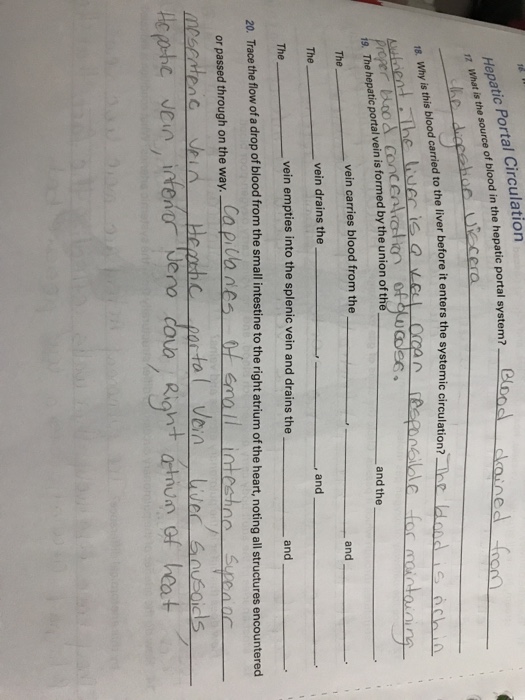 Hepatic Portal Circulation
17. What is the source of blood in the hepatic portal system? Blood drained from
the digestive viscera
18. Why is this blood carried to the liver before it enters the systemic circulation? The blood is rich in
nutrient. The liver is a key organ responsible for maintaining
proper blood concentration of glucose.
19. The hepatic portal vein is formed by the union of the ____ and the ____.
The ____ vein carries blood from the ____, ____, and ____.
The ____ vein drains the ____, ____, and ____.
The ____ vein empties into the splenic vein and drains the ____ and ____.
20. Trace the flow of a drop of blood from the small intestine to the right atrium of the heart, noting all structures encountered
or passed through on the way. Capillaries of small intestine superior
mesenteric vein Hepatic portal vein liver sinusoids,
Hepatic vein, inferior vena cava, Right atrium of heat